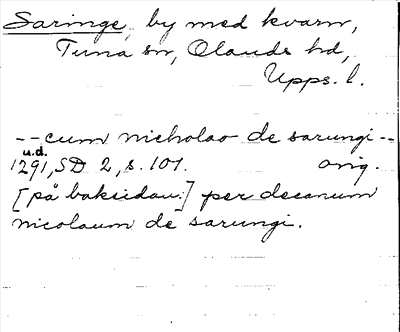 Saringe, by med kvarn,
Tuna sn, Olands hd,
Upps. l.
-- cum nicholao de sarungi --
u.d.
1291, SD 2, s. 101. orig.
[på baksidan:] per decanum
nicolaum de sarungi.